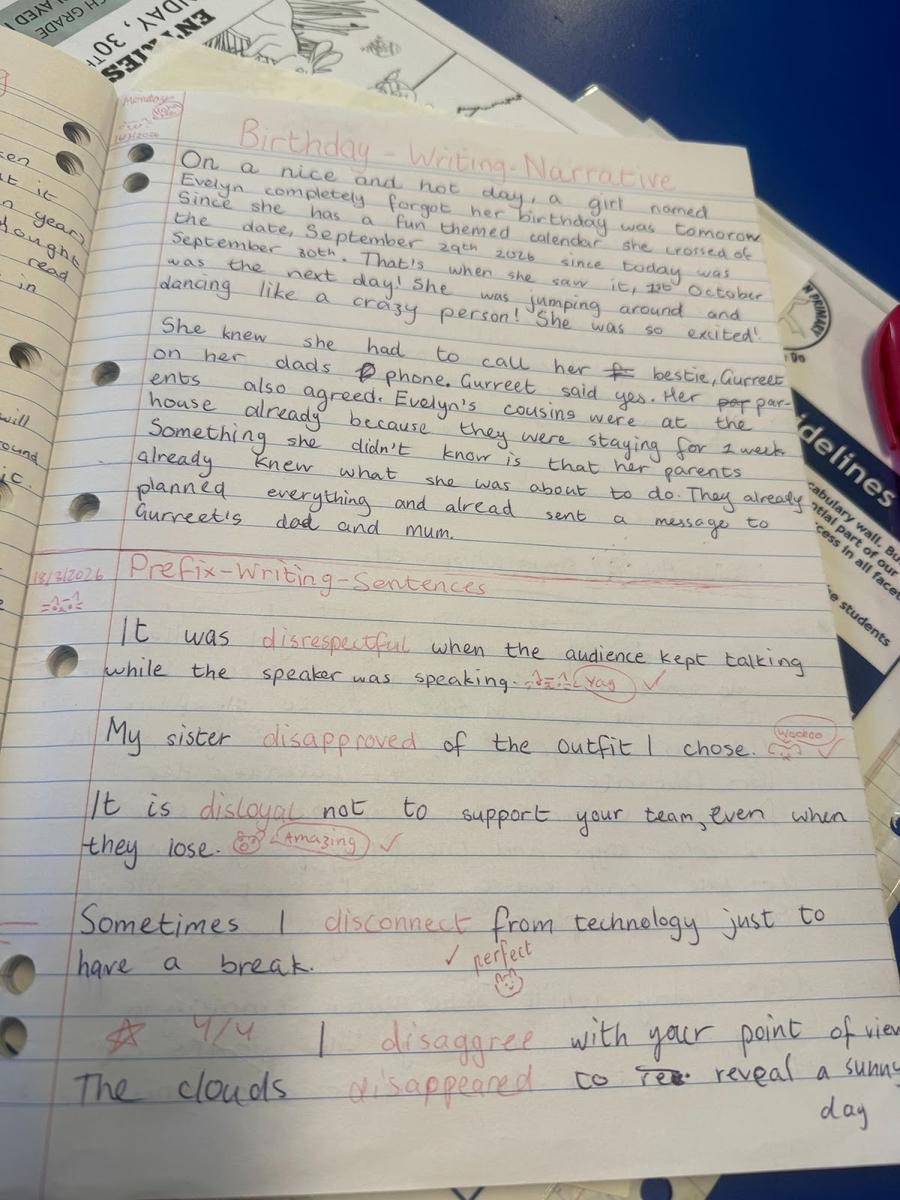 CH GRADE
PLAYED
ENTRIES
DAY, 30TH
Monday
16/3/2026
Birthday - Writing-Narrative
On a nice and hot day, a girl named
Evelyn completely forgot her birthday was tomorow
Since she has a fun themed calendar she crossed of
the date, September 29th 2026 since today was
September 30th. That's when she saw it, 1st October
was the next day! She was jumping around and
dancing like a crazy person! She was so excited!
She knew she had to call her bestie, Gurreet
on her dads phone. Gurreet said yes. Her par-
ents also agreed. Evelyn's cousins were at the
house already because they were staying for 1 week
Something she didn't know is that her parents
already knew what she was about to do. They already
planned everything and alread sent a message to
Gurreet's dad and mum.
18/3/2026
Prefix-Writing-Sentences
It was disrespectful when the audience kept talking
while the speaker was speaking. Yay ✓
My sister disapproved of the outfit I chose. Woohoo ✓
It is disloyal not to support your team, even when
they lose. Amazing ✓
Sometimes I disconnect from technology just to
have a break. ✓ perfect
4/4 I disaggree with your point of view
The clouds disappeared to reveal a sunny
day
en
at it
n years
hought
read
in
will
ound
ic.
N PRIMARY
idelines
cabulary wall. Bu
ntial part of our
ccess in all facet
e students